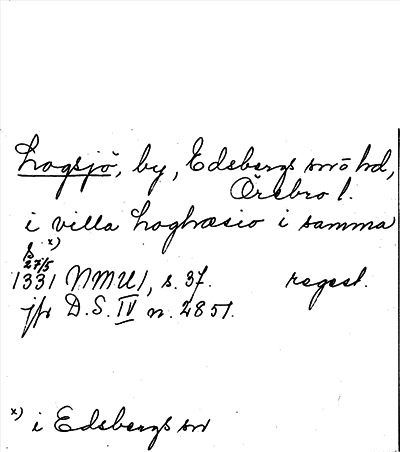 Logsjö, by, Edsbergs sn o hd,
Örebro l.
i villa loghæsio i samma x)
27/5
1331 NMU 1, s. 37. regest.
jfr D.S. IV n. 2851.
x) i Edsbergs sn